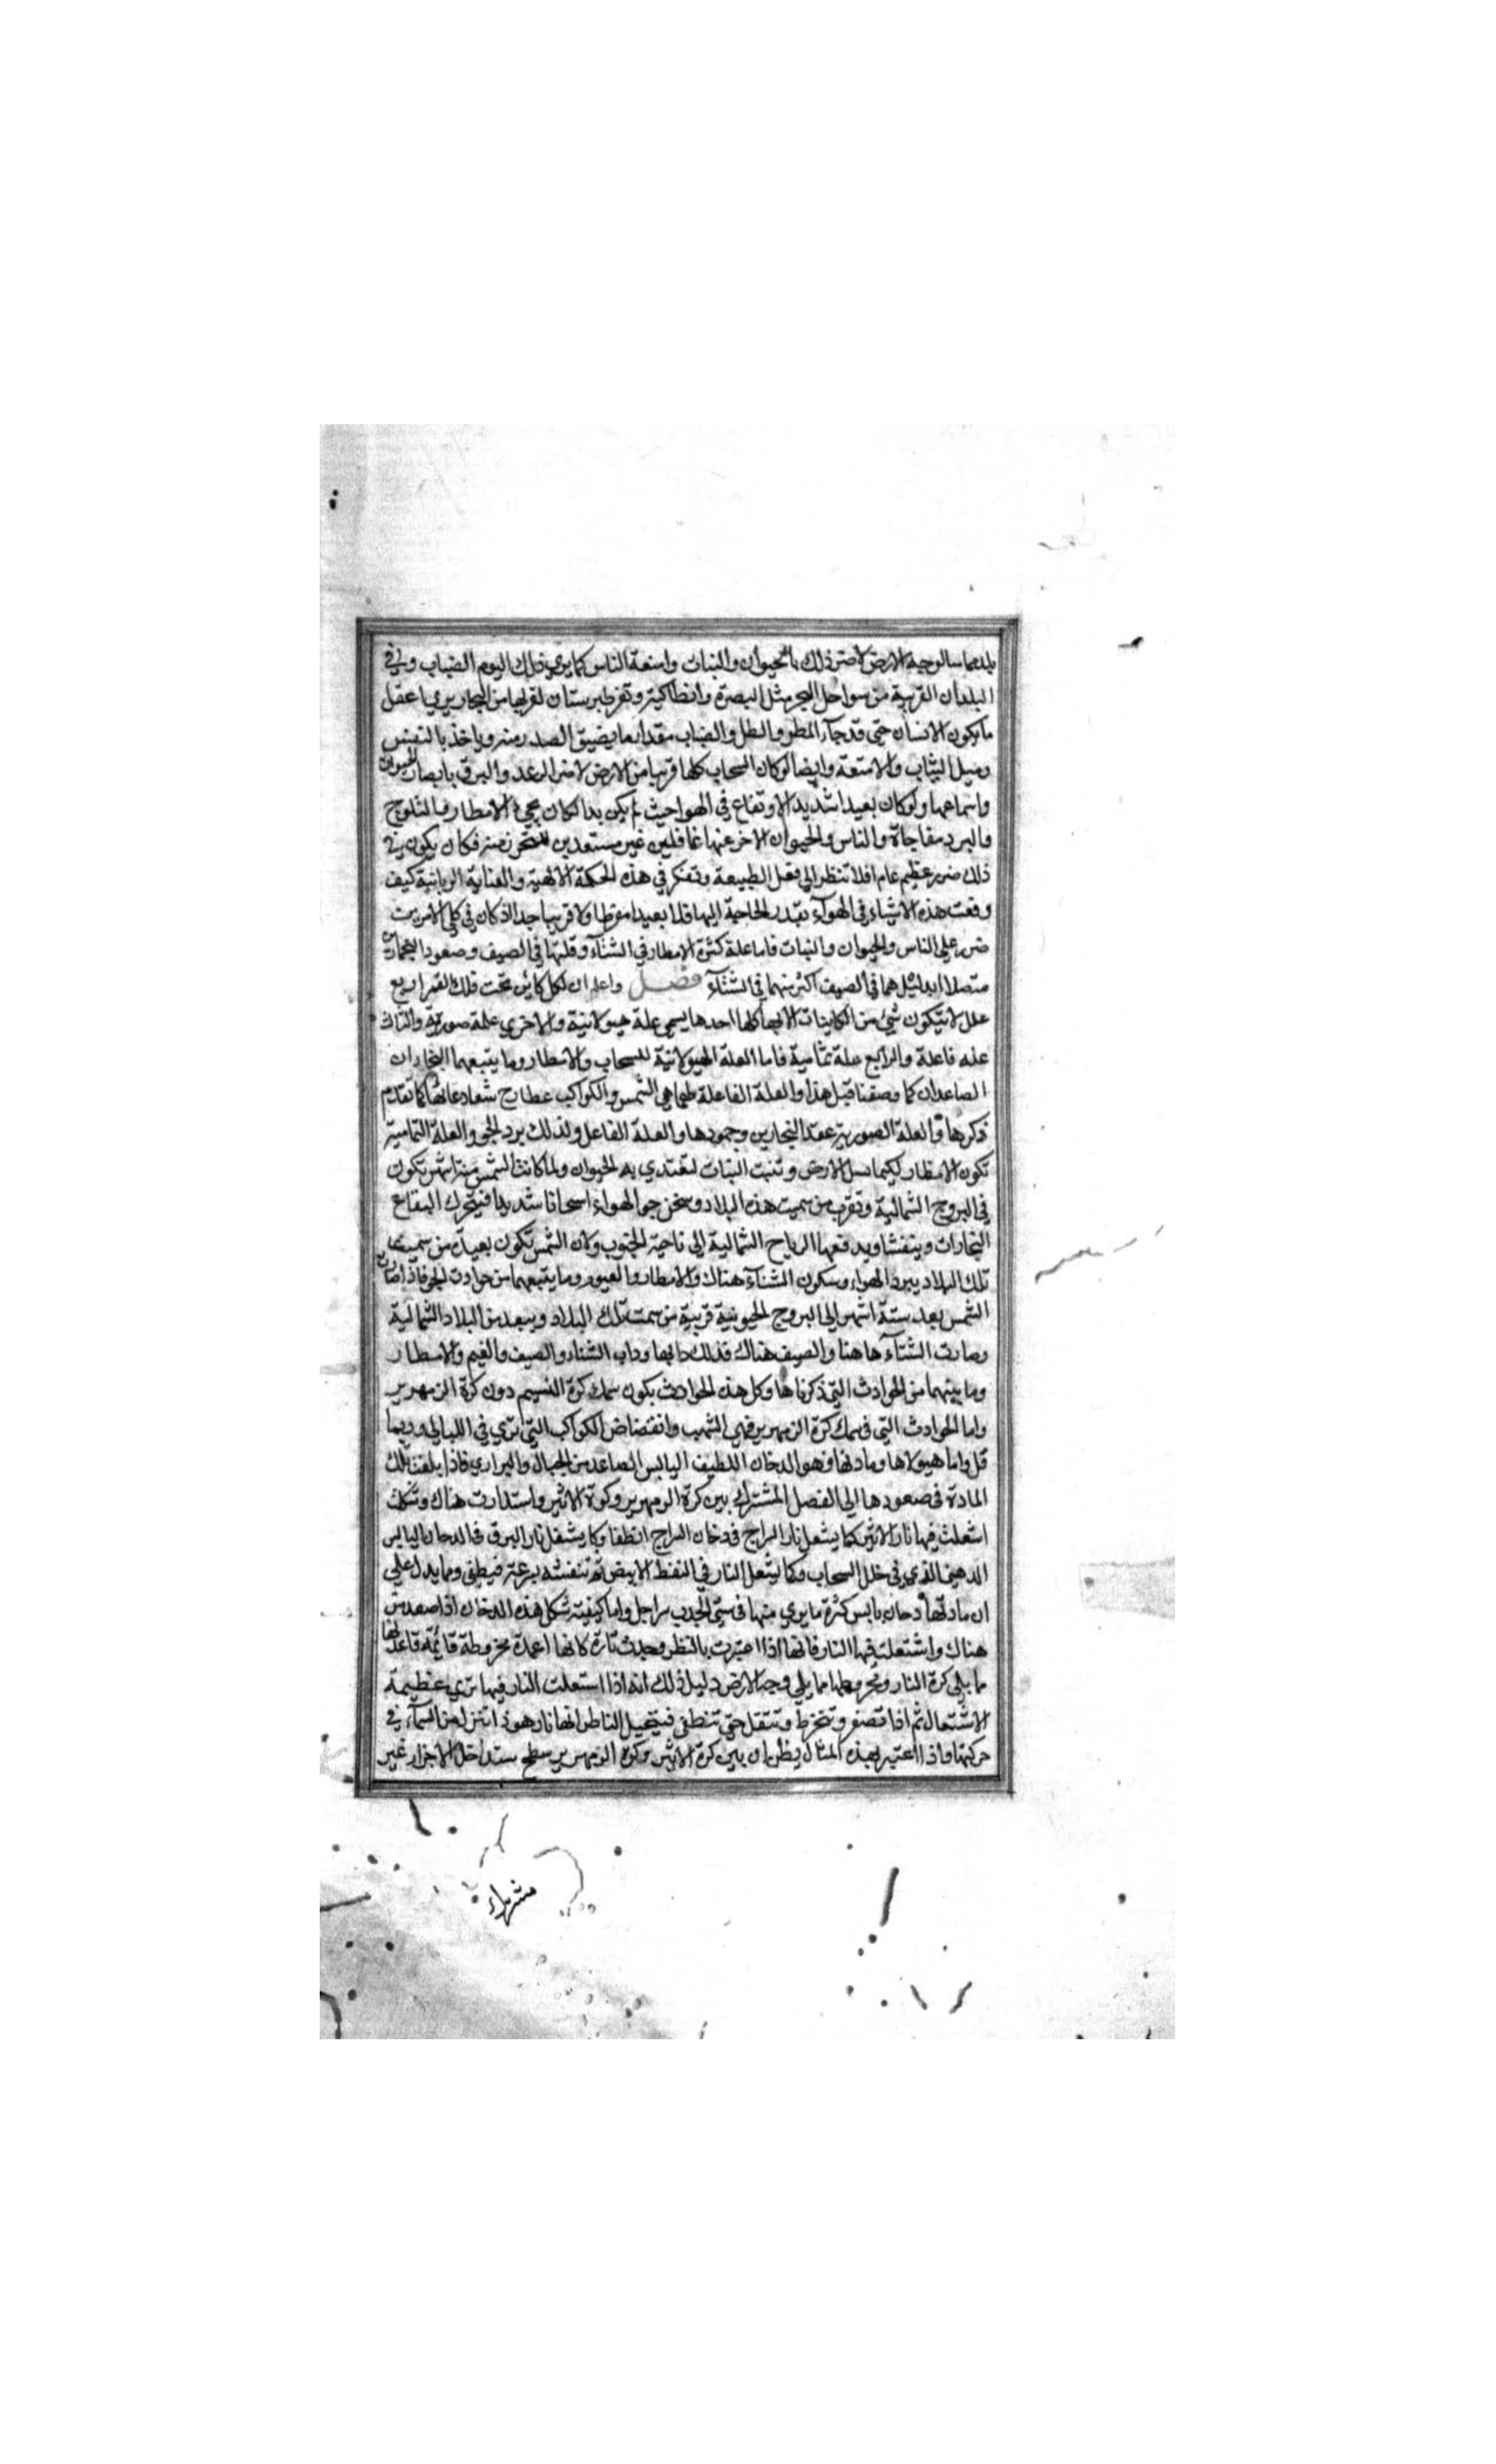 مماسا لوجه الارض لاضر ذلك بالحيوان والنبات وامتعة الناس كما يري ذلك اليوم الضباب وفي
البلدان القريبة من سواحل البحر مثل البصرة وانطاكية وتفر طبرستان لقربها من البحار يري اعقل
ما يكون الانسان حتي قد جآء المطر والطل والضباب مقدار ما يضيق الصدر منه وياخذ بالنفس
ويبل الثياب والامتعة وايضا لو كان السحاب كلها قريبا من الارض لاضر الرعد والبرق بابصار الحيوان
واسماعها ولو كان بعيدا شديد الارتفاع في الهوا حيث لم يكن يدا لكان يجي الامطار والثلوج
والبرد مفاجاة والناس والحيوان الاخر عنها غافلين غير مستعدين للتحرز منه فكان يكون في
ذلك ضرر عظيم عام افلا تنظر الي فعل الطبيعة وتفكر في هذه الحكمة الالهية والعناية الربانية كيف
وقعت هذه الاشياء في الهوآء بقدر الحاجة اليها فلا بعيدا مفرطا ولا قريبا جدا اذ كان في كلي الامرين
ضرر علي الناس والحيوان والنبات فاما علة كثرة الامطار في الشتآء وقلتها في الصيف وصعود البخارات
متصلا ابدا بل هما في الصيف اكثر منهما في الشتآء فصل واعلم ان لكل كاين تحت فلك القمر اربع
علل لا يتكون شيئ من الكاينات الا بها كلها احدها يسمي علة هيولانية والاخري علة صورية والثالث
علة فاعلة والرابع علة تمامية فاما العلة الهيولانية للسحاب والامطار وما يتبعهما البخاران
الصاعدان كما وصفنا قبل هذا والعلة الفاعلة طما هي الشمس والكواكب بمطارح شعاعاتها كما تقدم
ذكرها والعلة الصورية عقد البخارين وجمودها والعلة الفاعل ولذلك برد الجو والعلة التمامية
تكون الامطار ليكما يبل الارض وتنبت النبات لتغتدي به الحيوان ولما كانت الشمس ستة اشهر تكون
في البروج الشمالية وتقرب من سميت هذه البلاد وسخن جو الهواء اسخانا شديدا فيتحرك البقاع
البخارات ويتفشا ويدفعها الرياح الشمالية الي ناحية الجنوب ولان الشمس تكون بعيدة من سميت
تلك البلاد يبرد الهواء وسكون الشتآء هناك والامطار والغيوم وما يتبعهما من حوادث الجو فاذا صارت
الشمس بعد ستة اشهر الي البروج الجنوبية قريبة من سمت تلك البلاد ويبعد من البلاد الشمالية
وصارت الشتآء هاهنا والصيف هناك فذلك دابها وداب الشتاء والصيف والغيم والامطار
وما بينهما من الحوادث التي ذكرناها وكل هذه الحوادث يكون سمك كرة النسيم دون كرة الزمهرير
واما الحوادث التي في سمك كرة الزمهرير فهي الشهب وانقضاض الكواكب التي تري في الليالي وربما
قل واما هيولاها ومادتها فهو الدخان اللطيف اليابس الصاعد من الجبال والبراري فاذا بلغت تلك
المادة في صعودها الي الفصل المشترك بين كرة الزمهرير وكرة الاثير واستدارت هناك وتشكلت
اشعلت فيها نار الاثير كما يشعل نار السراج في دخان السراج انطفا وكما يشعل نار البرق في الدخان اليابس
الدهني الذي في خلل السحاب وكما يشعل النار في النفط الابيض ثم تنفشه بسرعة فيطفي ومما يدل علي
ان مادتها دخان يابس كثرة ما يري منها في سني الجدب واما كيفية شكل هذه الدخان اذا صعدت
هناك واشتعلت فيها النار فانها اذا اعتبرت بالنظر وجدت تارة كانها اعمدة مخروطة قائمة قاعدتها
ما يلي كرة النار ومخروطها مما يلي وجه الارض دليل ذلك انه اذا استعلت النار فيها تري عظيمة
الاشتعال ثم اذا تصغر وتنخرط وتتقل حتي تنطفي فيتخيل الناظر انها نار هوذا تنزل من السمآء في
حركتها واذا اعتبر بهذه المثال يظن ان بين كرة الاثير وكرة الزمهرير سطح ستداخل الاجزاء غير